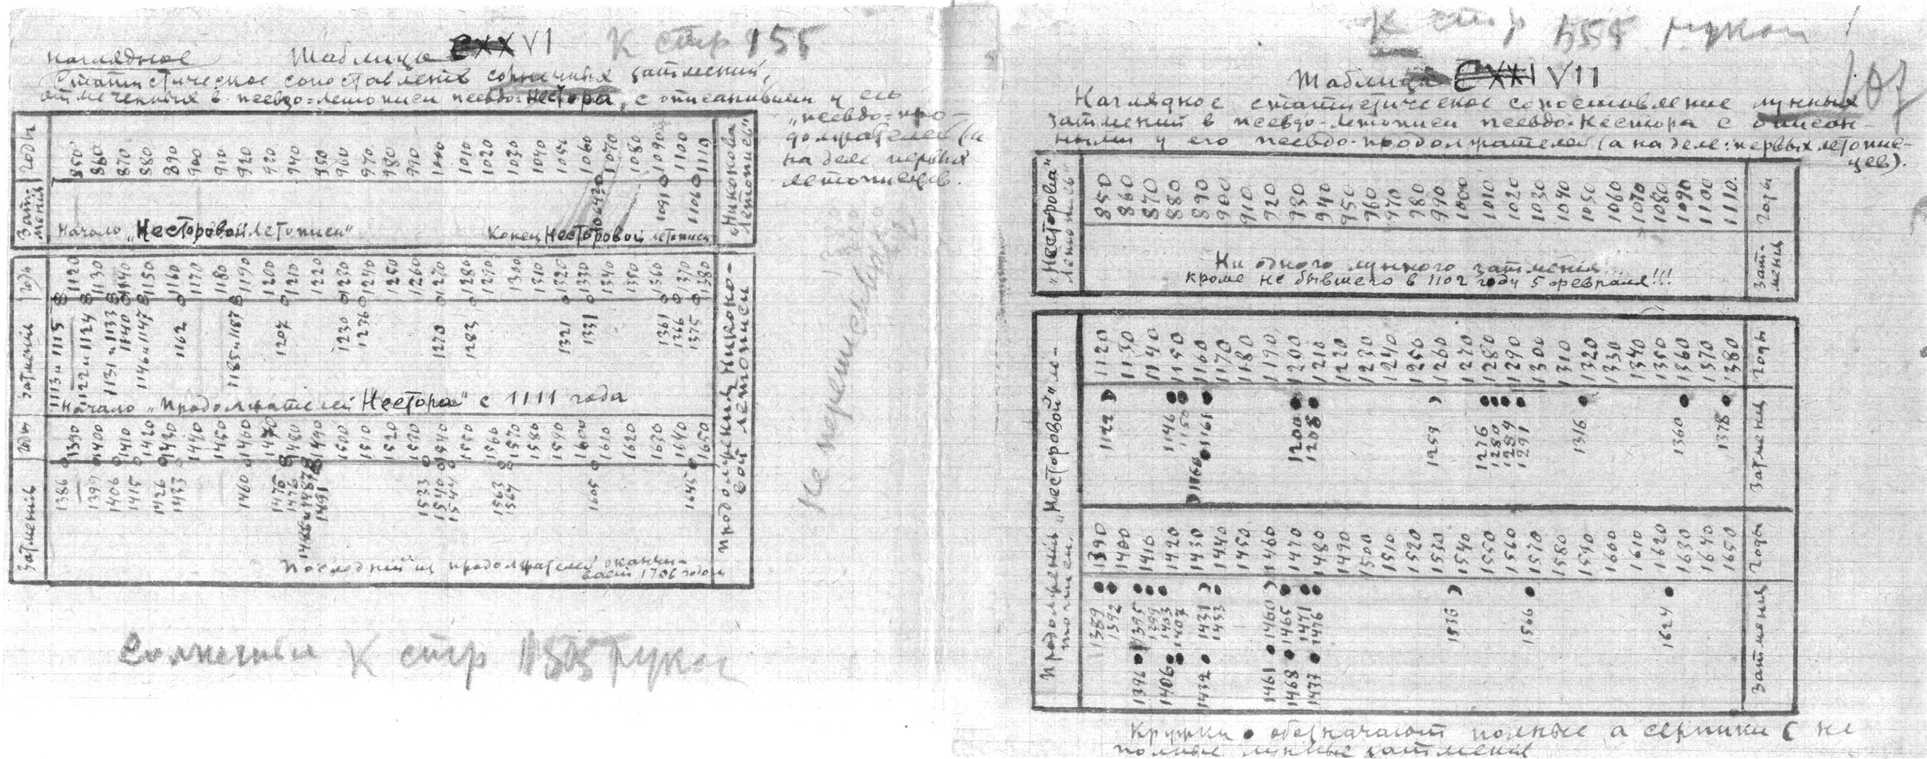 К стр 155
Таблица CXXVI
наглядное
Статистическое сопоставление солнечных затмений,
отмеченных в псевдо-летописи псевдо-Нестора, с описанными у его
"псевдо-про-
должателей (а
на деле первых
летописцев.
Годы 850 860 870 880 890 900 910 920 930 940 950 960 970 980 990 1000 1010 1020 1030 1040 1050 1060 1070 1080 1090 1100 1110
Затмений 1064 1091 1106
Начало "Несторовой летописи" Конец Несторовой летописи
"Никонова летопись"
Годы 1120 1130 1140 1150 1160 1170 1180 1190 1200 1210 1220 1230 1240 1250 1260 1270 1280 1290 1300 1310 1320 1330 1340 1350 1360 1370 1380
затмений 1113 и 1115 1122 и 1124 1131 и 1133 1140 1146 и 1147 1162 1185 и 1187 1207 1230 1236 1270 1283 1321 1331 1361 1366 1375
Начало "Продолжателей Нестора" с 1111 года
Годы 1390 1400 1410 1420 1430 1440 1450 1460 1470 1480 1490 1500 1510 1520 1530 1540 1550 1560 1570 1580 1590 1600 1610 1620 1630 1640 1650
Затмений 1386 1399 1406 1415 1426 1433 1460 1475 1476 1486 и 1487 1491 1533 1540 1544 1563 1567 1605 1645
Последний из продолжателей оканчи-
вает 1706 годом
Продолжения Никоно-
вой летописи
Не перештемпелев
Солнечные К стр 155 рукоп
К стр 155 рукоп
107
Таблица CXXIVII
Наглядное статистическое сопоставление лунных
затмений в псевдо-летописи псевдо-Нестора с описан-
ными у его псевдо-продолжателей (а на деле: первых летопис-
цев).
"Несторова"
летопись"
850 860 870 880 890 900 910 920 930 940 950 960 970 980 990 1000 1010 1020 1030 1040 1050 1060 1070 1080 1090 1100 1110 Годы
Ни одного лунного затмения
кроме не бывшего в 1102 году 5 февраля!!!
Зат-
мения
Продолжения "Несторовой" ле-
тописи.
1120 1130 1140 1150 1160 1170 1180 1190 1200 1210 1220 1230 1240 1250 1260 1270 1280 1290 1300 1310 1320 1330 1340 1350 1360 1370 1380 Годы
1122 1146 1150 1160 1161 1200 1208 1259 1276 1280 1289 1291 1316 1360 1378 Затмения
1390 1400 1410 1420 1430 1440 1450 1460 1470 1480 1490 1500 1510 1520 1530 1540 1550 1560 1570 1580 1590 1600 1610 1620 1630 1640 1650 Годы
1389 1392 1395 1399 1403 1407 1431 1433 1460 1465 1471 1476 1536 1566 1624 Затмения
1396 1406 1432 1461 1468 1477
Кружки ● обозначают полные а серпики ( не
полные лунные затмения